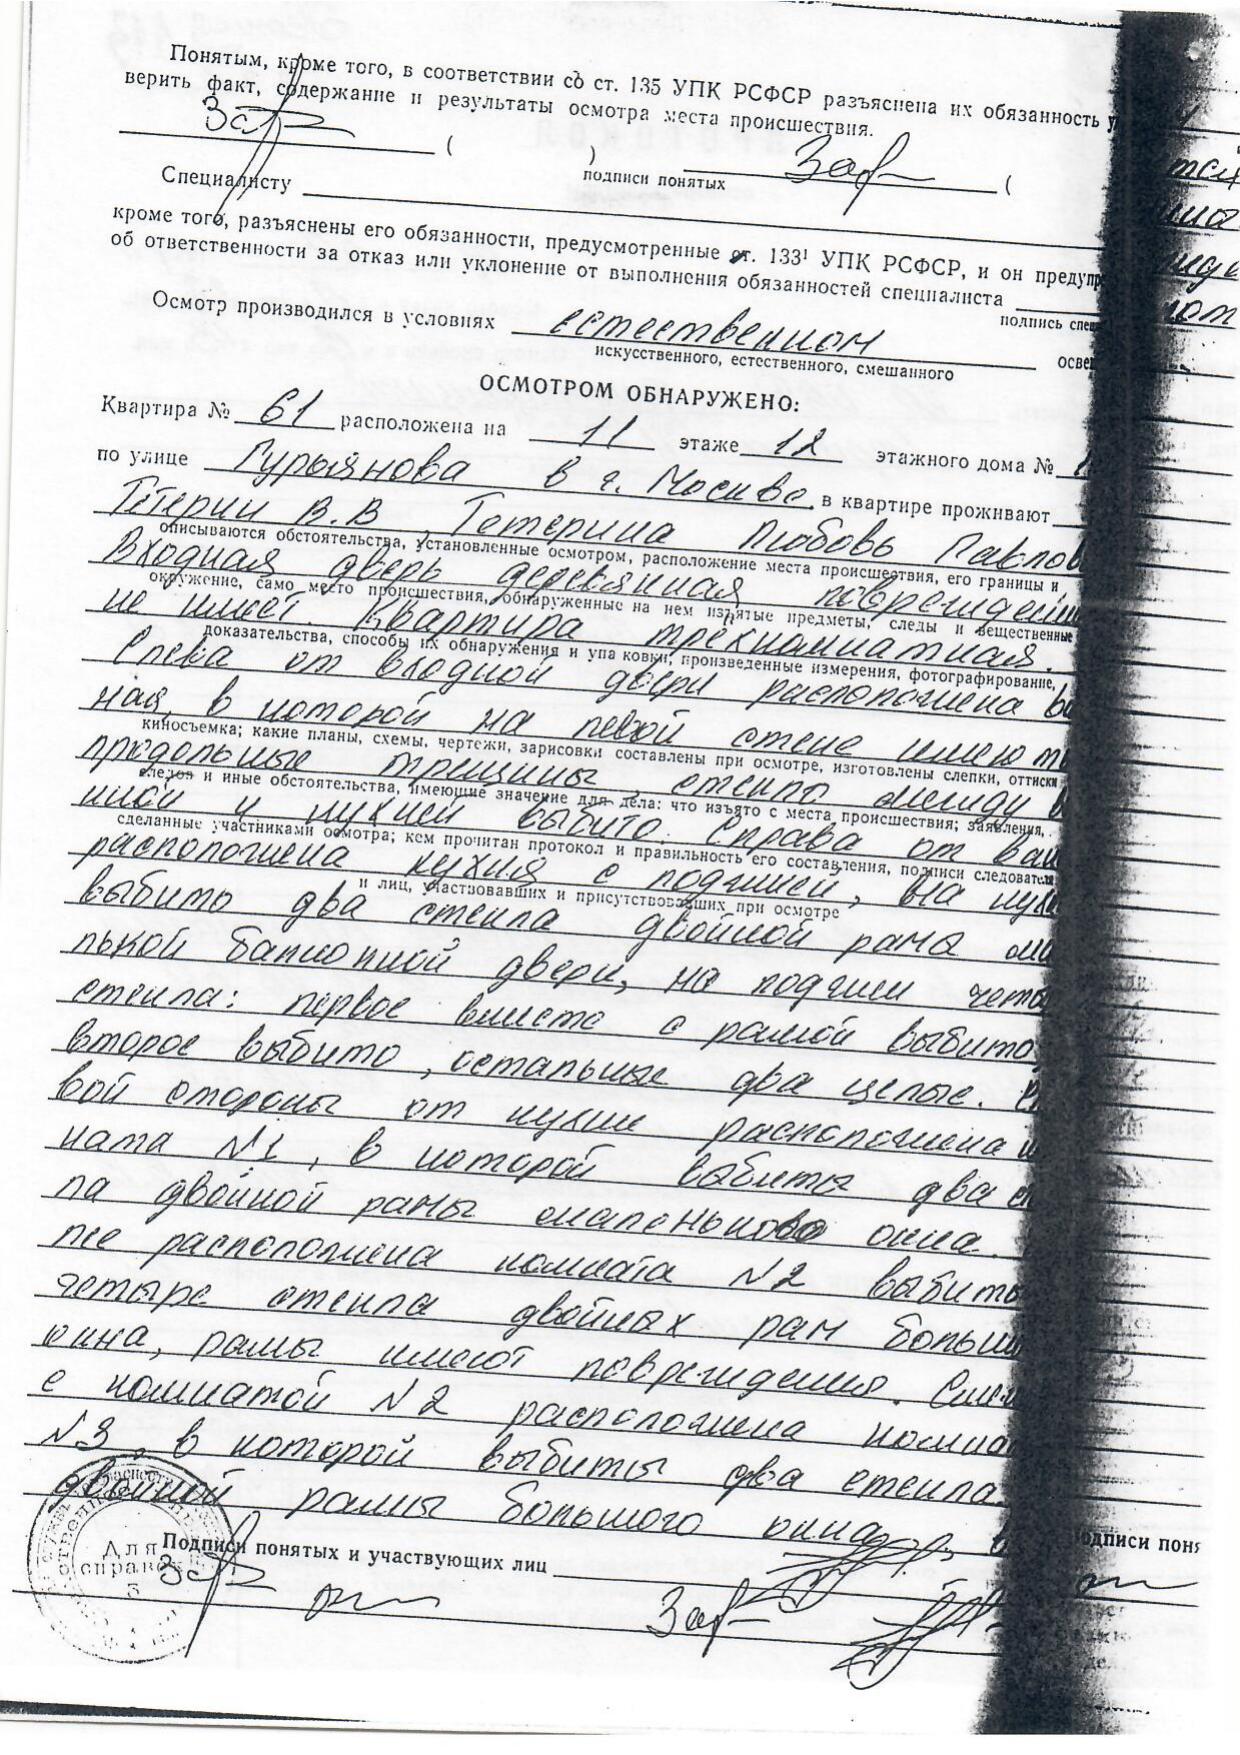 Понятым, кроме того, в соответствии со ст. 135 УПК РСФСР разъяснена их обязанность у
верить факт, содержание и результаты осмотра места происшествия.
Зар ( ) Зар (
подписи понятых
Специалисту
кроме того, разъяснены его обязанности, предусмотренные ст. 133¹ УПК РСФСР, и он предупр
об ответственности за отказ или уклонение от выполнения обязанностей специалиста
подпись спец
Осмотр производился в условиях естественном осве
искусственного, естественного, смешанного
ОСМОТРОМ ОБНАРУЖЕНО:
Квартира № 61 расположена на 11 этаже 12 этажного дома № 1
по улице Гурьянова в г. Москве, в квартире проживают
Тетерин В.В, Тетерина Любовь Павлов
описываются обстоятельства, установленные осмотром, расположение места происшествия, его границы и
Входная дверь деревянная повреждени
окружение, само место происшествия, обнаруженные на нем изъятые предметы, следы и вещественные
не имеет. Квартира трёхкомнатная.
доказательства, способы их обнаружения и упаковки, произведенные измерения, фотографирование,
Слева от входной двери расположена ва
ная, в которой на левой стене имеют
киносъемка; какие планы, схемы, чертежи, зарисовки составлены при осмотре, изготовлены слепки, оттиски
продольные трещины, стекло между в
следов и иные обстоятельства, имеющие значение для дела: что изъято с места происшествия; заявления,
ной и кухней выбито. Справа от ван
сделанные участниками осмотра; кем прочитан протокол и правильность его составления, подписи следователя
расположена кухня с лоджией, на кух
и лиц, участвовавших и присутствовавших при осмотре
выбито два стекла двойной рамы ма
лькой балконной двери, на лоджии четы
стекла: первое вместе с рамой выбито,
второе выбито, остальные два целые.
вой стороны от кухни расположена к
ната №1, в которой выбиты два с
ла двойной рамы маленького окна.
лее расположена комната №2 выбиты
четыре стекла двойных рам больш
окна, рамы имеют повреждения. Смеж
с комнатой №2 расположена комна
№3, в которой выбиты два стекла
двойной рамы большого окна,
Для
справок
3
Подписи понятых и участвующих лиц
одписи поня
Зар Зар